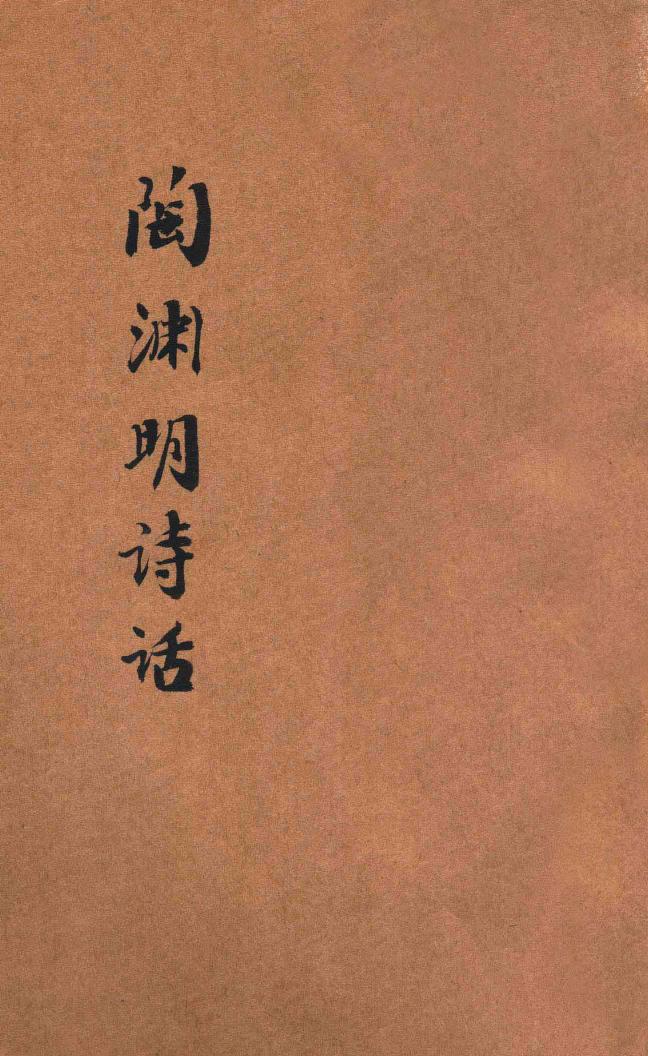 陶渊明诗话